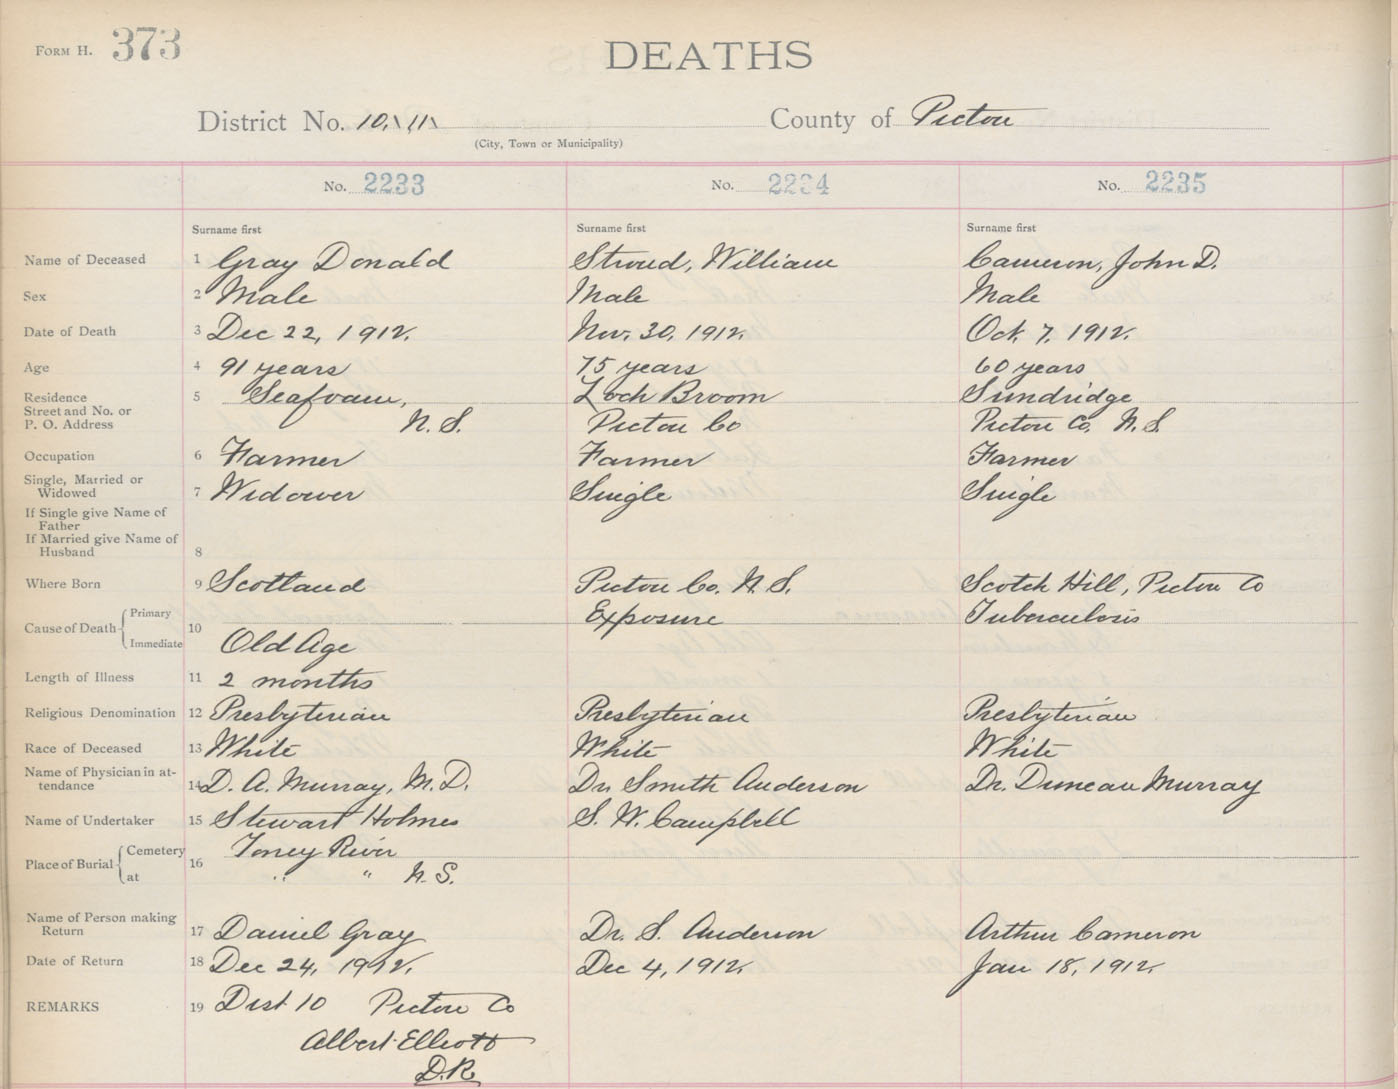 FORM H. 373
DEATHS
District No. 10, 11 County of Pictou
(City, Town or Municipality)
No. 2233 No. 2234 No. 2235
Surname first Surname first Surname first
Name of Deceased 1 Gray Donald Stroud, William Cameron, John D.
Sex 2 Male Male Male
Date of Death 3 Dec 22, 1912. Nov. 30, 1912. Oct. 7, 1912.
Age 4 91 years 75 years 60 years
Residence 5 Seafoam, Loch Broom Sundridge
Street and No. or
P. O. Address N.S. Pictou Co Pictou Co, N.S.
Occupation 6 Farmer Farmer Farmer
Single, Married or
Widowed 7 Widower Single Single
If Single give Name of
Father
If Married give Name of
Husband 8
Where Born 9 Scotland Pictou Co. N.S. Scotch Hill, Pictou Co
Primary Exposure Tuberculosis
Cause of Death 10
Immediate Old Age
Length of Illness 11 2 months
Religious Denomination 12 Presbyterian Presbyterian Presbyterian
Race of Deceased 13 White White White
Name of Physician in at-
tendance 14 D. A. Murray, M.D. Dr. Smith Anderson Dr. Duncan Murray
Name of Undertaker 15 Stewart Holmes S. W. Campbell
Cemetery Toney River
Place of Burial 16
at " " N.S.
Name of Person making
Return 17 Daniel Gray Dr. S. Anderson Arthur Cameron
Date of Return 18 Dec 24, 1912. Dec 4, 1912. Jan 18, 1912.
REMARKS 19 Dist 10 Pictou Co
Albert Elliott
D.R.